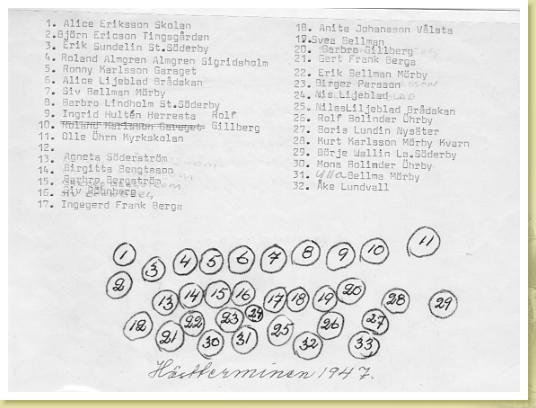 1. Alice Eriksson Skolan
2. Björn Ericson Tingsgården
3. Erik Sundelin St.Söderby
4. Roland Almgren Almgren Sigridsholm
5. Ronny Karlsson Garaget
6. Alice Liljeblad Brådskan
7. Siv Bellman Mörby
8. Barbro Lindholm St.Söderby
9. Ingrid Hultén Herresta Rolf
10. Roland Karlsson Garaget Gillberg
11. Olle Öhrn Myrkskolan
12.
13. Agneta Söderström
14. Birgitta Bengtsson
15. Barbro Bergström
16. Siv
17. Ingegerd Frank Berga
18. Anita Johansson Välsta
19. Svea Bellman
20. Barbro Gillberg
21. Gert Frank Berga
22. Erik Bellman Mörby
23. Birger Persson
24. Nis Liljeblad
25. NilssLiljeblad Brådskan
26. Rolf Bolinder Öhrby
27. Boris Lundin Nysäter
28. Kurt Karlsson Mörby Kvarn
29. Börje Wallin La.Söderby
30. Mona Bolinder Öhrby
31. Ulla Bellma Mörby
32. Åke Lundvall
1 3 4 5 6 7 8 9 10 11
2
13 14 15 16 17 18 19 20 28 29
12 21 22 23 24 25 26 27
30 31 32 33
Höstterminen 1947.